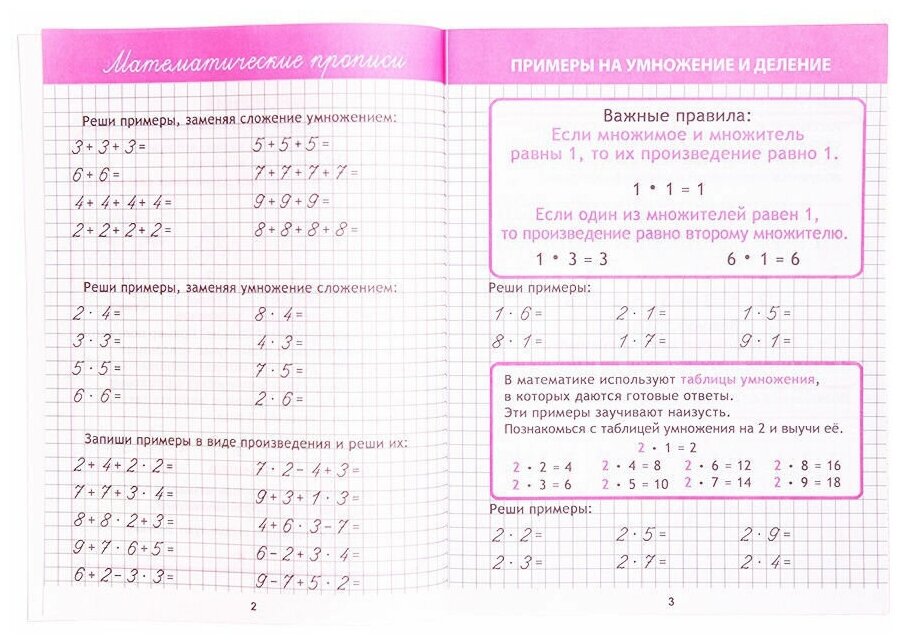 Математические прописи
Реши примеры, заменяя сложение умножением:
3+3+3= 5+5+5=
6+6= 7+7+7+7=
4+4+4+4= 9+9+9=
2+2+2+2= 8+8+8+8=
Реши примеры, заменяя умножение сложением:
2·4= 8·4=
3·3= 4·3=
5·5= 7·5=
6·6= 2·6=
Запиши примеры в виде произведения и реши их:
2+4+2·2= 7·2-4+3=
7+7+3·4= 9+3+1·3=
8+8·2+3= 4+6·3-7=
9+7·6+5= 6-2+3·4=
6+2-3·3= 9-7+5·2=
2
ПРИМЕРЫ НА УМНОЖЕНИЕ И ДЕЛЕНИЕ
Важные правила:
Если множимое и множитель
равны 1, то их произведение равно 1.
1 • 1 = 1
Если один из множителей равен 1,
то произведение равно второму множителю.
1 • 3 = 3 6 • 1 = 6
Реши примеры:
1·6= 2·1= 1·5=
8·1= 1·7= 9·1=
В математике используют таблицы умножения,
в которых даются готовые ответы.
Эти примеры заучивают наизусть.
Познакомься с таблицей умножения на 2 и выучи её.
2 • 1 = 2
2 • 2 = 4 2 • 4 = 8 2 • 6 = 12 2 • 8 = 16
2 • 3 = 6 2 • 5 = 10 2 • 7 = 14 2 • 9 = 18
Реши примеры:
2·2= 2·5= 2·9=
2·3= 2·7= 2·4=
3